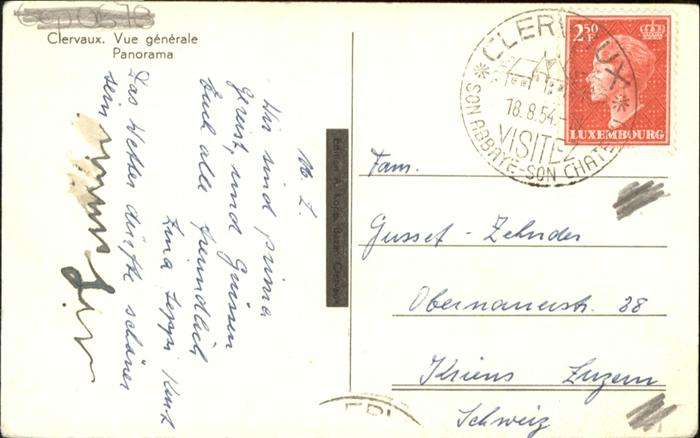 Clervaux. Vue générale
Panorama
M. L.
Wir sind prima
gereist, und Grüssen
Euch alle freundlich
Das Wetter dürfte schöner
sein
CLERVAUX
18.8.54
VISITEZ
SON ABBAYE-SON CHATEAU
2.50 F
LUXEMBOURG
Fam.
Gusset-Zehnder
Obernauerstr. 38
Kriens Luzern
Schweiz